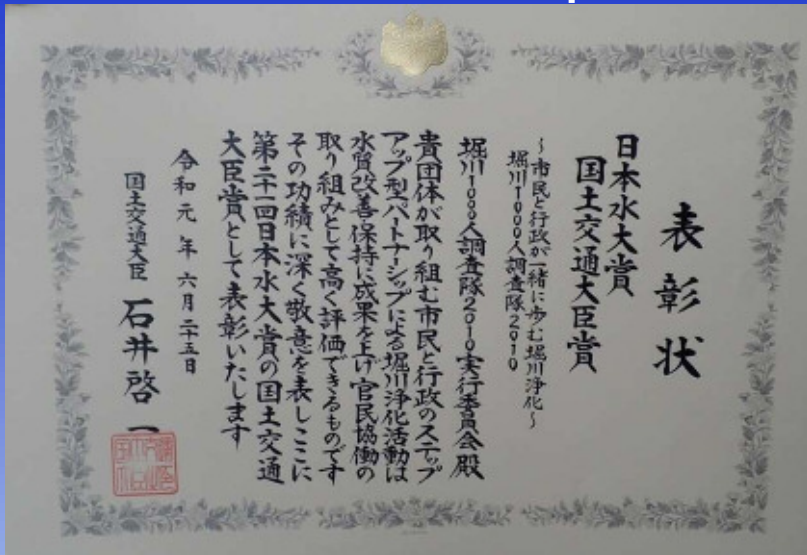 表彰状
日本水大賞
国土交通大臣賞
～市民と行政が一緒に歩む堀川浄化～
堀川1000人調査隊2010
堀川1000人調査隊2010実行委員会殿
貴団体が取り組む市民と行政のステップ
アップ型パートナーシップによる堀川浄化活動は
水質改善・保持に成果を上げ官民協働の
取り組みとして高く評価できるものです
その功績に深く敬意を表しここに
第二十一回日本水大賞の国土交通
大臣賞として表彰いたします
令和元年六月二十五日
国土交通大臣 石井啓一